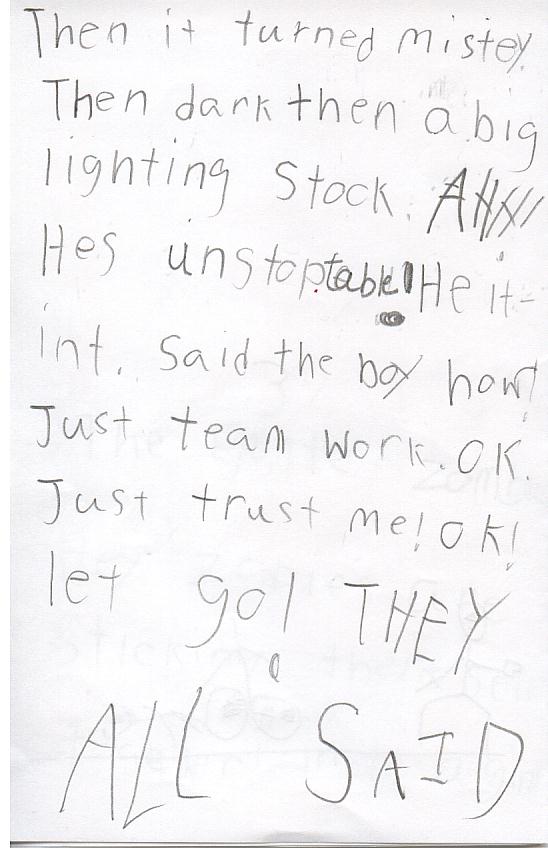 Then it turned mistey.
Then dark then a big
lighting Stock. AHHH
Hes unstoptable! He it-
int. Said the boy how!
Just team work. OK.
Just trust me! ok!
let go! THEY
ALL SAID